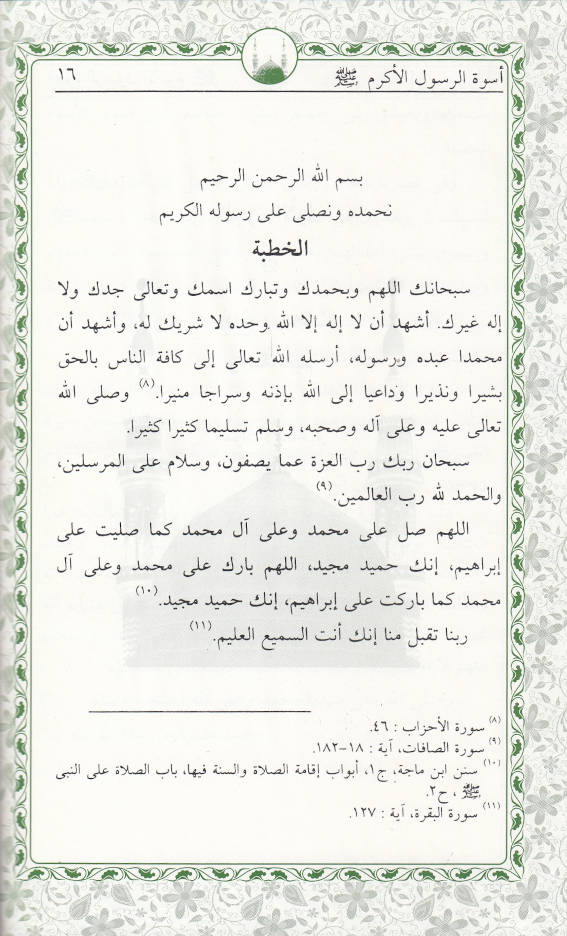 أسوة الرسول الأكرم ﷺ ١٦
بسم الله الرحمن الرحيم
نحمده ونصلى على رسوله الكريم
الخطبة
سبحانك اللهم وبحمدك وتبارك اسمك وتعالى جدك ولا
إله غيرك. أشهد أن لا إله إلا الله وحده لا شريك له، وأشهد أن
محمدا عبده ورسوله، أرسله الله تعالى إلى كافة الناس بالحق
بشيرا ونذيرا وداعيا إلى الله بإذنه وسراجا منيرا.(٨) وصلى الله
تعالى عليه وعلى آله وصحبه، وسلم تسليما كثيرا كثيرا.
سبحان ربك رب العزة عما يصفون، وسلام على المرسلين،
والحمد لله رب العالمين.(٩)
اللهم صل على محمد وعلى آل محمد كما صليت على
إبراهيم، إنك حميد مجيد، اللهم بارك على محمد وعلى آل
محمد كما باركت على إبراهيم، إنك حميد مجيد.(١٠)
ربنا تقبل منا إنك أنت السميع العليم.(١١)
(٨) سورة الأحزاب : ٤٦.
(٩) سورة الصافات، آية : ١٨-١٨٢.
(١٠) سنن ابن ماجة، ج١، أبواب إقامة الصلاة والسنة فيها، باب الصلاة على النبى
ﷺ ، ح٢.
(١١) سورة البقرة، آية : ١٢٧.